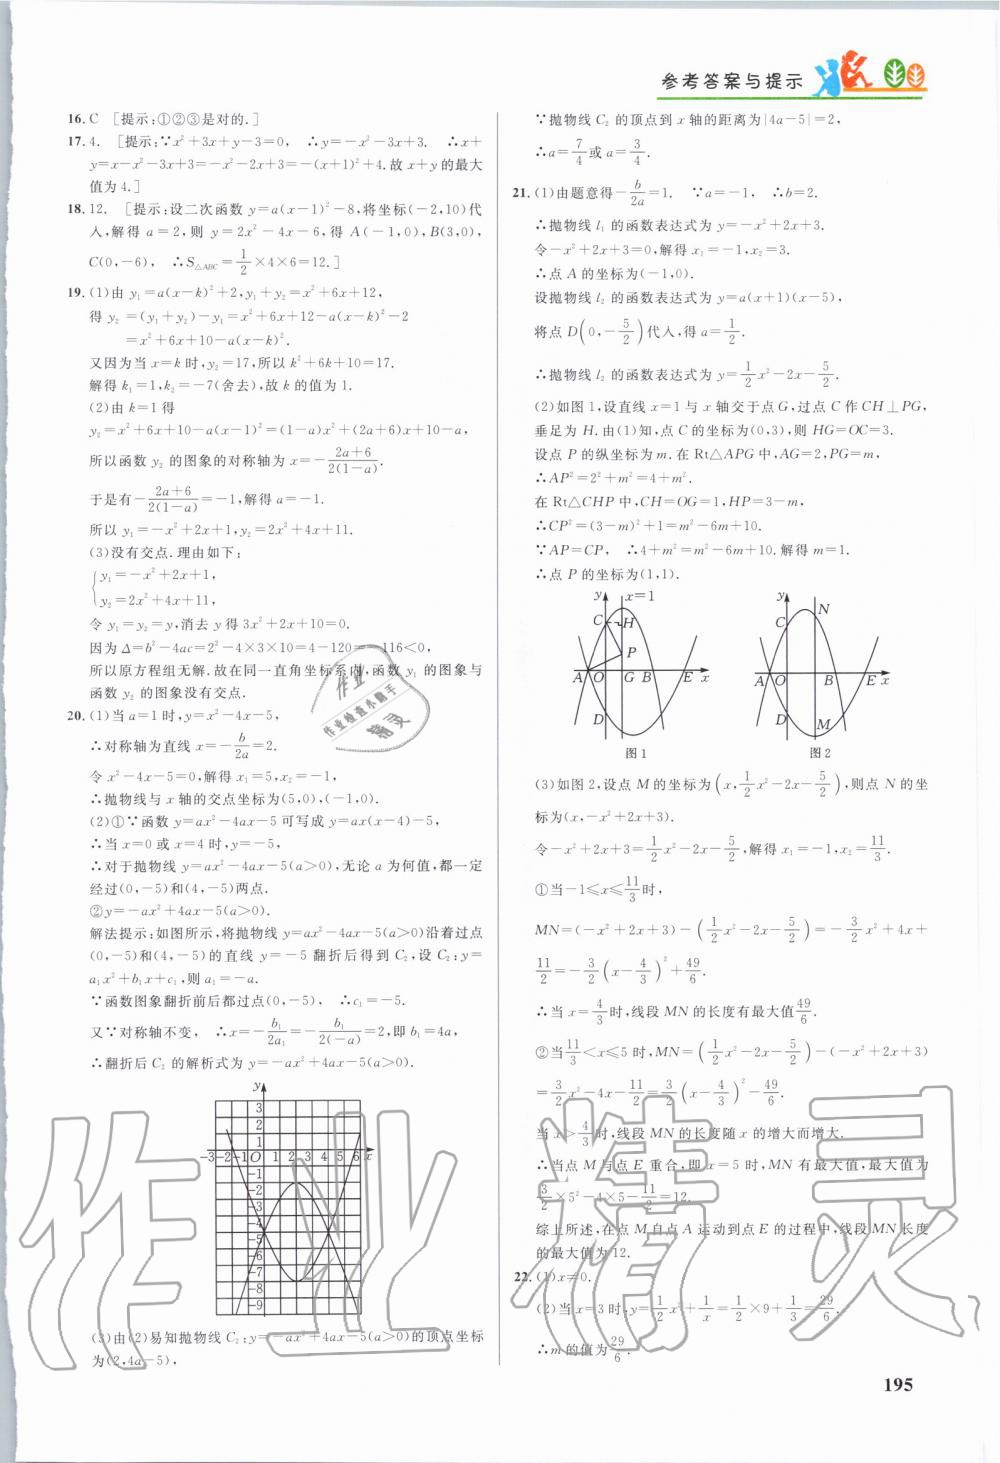 参考答案与提示
16. C [提示:①②③是对的.]
17. 4. [提示:∵x²+3x+y-3=0, ∴y=-x²-3x+3. ∴x+
y=x-x²-3x+3=-x²-2x+3=-(x+1)²+4.故 x+y的最大
值为4.]
18. 12. [提示:设二次函数 y=a(x-1)²-8,将坐标(-2,10)代
入,解得 a=2,则 y=2x²-4x-6,得 A(-1,0),B(3,0),
C(0,-6), ∴S△ABC=1/2×4×6=12.]
19. (1)由 y₁=a(x-k)²+2,y₁+y₂=x²+6x+12,
得 y₂=(y₁+y₂)-y₁=x²+6x+12-a(x-k)²-2
=x²+6x+10-a(x-k)².
又因为当 x=k 时,y₂=17,所以 k²+6k+10=17.
解得 k₁=1,k₂=-7(舍去),故 k 的值为 1.
(2)由 k=1 得
y₂=x²+6x+10-a(x-1)²=(1-a)x²+(2a+6)x+10-a,
所以函数 y₂ 的图象的对称轴为 x=-(2a+6)/2(1-a).
于是有-(2a+6)/2(1-a)=1,解得 a=-1.
所以 y₁=-x²+2x+1,y₂=2x²+4x+11.
(3)没有交点.理由如下:
{y₁=-x²+2x+1,
y₂=2x²+4x+11,
令 y₁=y₂=y,消去 y 得 3x²+2x+10=0.
因为 Δ=b²-4ac=2²-4×3×10=4-120=-116<0,
所以原方程组无解.故在同一直角坐标系内,函数 y₁ 的图象与
函数 y₂ 的图象没有交点.
20. (1)当 a=1 时,y=x²-4x-5,
∴对称轴为直线 x=-b/2a=2.
令 x²-4x-5=0,解得 x₁=5,x₂=-1,
∴抛物线与 x 轴的交点坐标为(5,0),(-1,0).
(2)①∵函数 y=ax²-4ax-5 可写成 y=ax(x-4)-5,
∴当 x=0 或 x=4 时,y=-5,
∴对于抛物线 y=ax²-4ax-5(a>0),无论 a 为何值,都一定
经过(0,-5)和(4,-5)两点.
②y=-ax²+4ax-5(a>0).
解法提示:如图所示,将抛物线 y=ax²-4ax-5沿着过点
(0,-5)和(4,-5)的直线 y=-5 翻折后得到 C₂,设 C₂:y=
a₁x²+b₁x+c₁,则 a₁=-a.
∵函数图象翻折前后都过点(0,-5), ∴c₁=-5.
又∵对称轴不变, ∴x=-b₁/2a₁=-b₁/2(-a)=2,即 b₁=4a,
∴翻折后 C₂ 的解析式为 y=-ax²+4ax-5(a>0).
y
3
2
1
-3-2-1 O 1 2 3 4 5 6 x
-1
-2
-3
-4
-5
-6
-7
-8
-9
(3)由(2)易知抛物线 C₂:y=-ax²+4ax-5(a>0)的顶点坐标
为(2,4a-5),
∵抛物线 C₂ 的顶点到 x 轴的距离为|4a-5|=2,
∴a=7/4或 a=3/4.
21. (1)由题意得-b/2a=1. ∵a=-1, ∴b=2.
∴抛物线 l₁ 的函数表达式为 y=-x²+2x+3.
令-x²+2x+3=0,解得 x₁=-1,x₂=3.
∴点 A 的坐标为(-1,0).
设抛物线 l₂ 的函数表达式为 y=a(x+1)(x-5),
将点 D(0,-5/2)代入,得 a=1/2.
∴抛物线 l₂ 的函数表达式为 y=1/2x²-2x-5/2.
(2)如图 1,设直线 x=1 与 x 轴交于点 G,过点 C 作 CH⊥PG,
垂足为 H.由(1)知,点 C 的坐标为(0,3),则 HG=OC=3.
设点 P 的纵坐标为 m.在 Rt△APG 中,AG=2,PG=m,
∴AP²=2²+m²=4+m².
在 Rt△CHP 中,CH=OG=1,HP=3-m,
∴CP²=(3-m)²+1=m²-6m+10.
∵AP=CP, ∴4+m²=m²-6m+10.解得 m=1.
∴点 P 的坐标为(1,1).
y x=1 C H P A O G B E x D
图1
y N C A O B E x D M
图2
(3)如图 2,设点 M 的坐标为(x,1/2x²-2x-5/2),则点 N 的坐
标为(x,-x²+2x+3).
令-x²+2x+3=1/2x²-2x-5/2,解得 x₁=-1,x₂=11/3.
①当-1≤x≤11/3时,
MN=(-x²+2x+3)-(1/2x²-2x-5/2)=-3/2x²+4x+
11/2=-3/2(x-4/3)²+49/6.
∴当 x=4/3时,线段 MN 的长度有最大值49/6.
②当11/3<x≤5 时,MN=(1/2x²-2x-5/2)-(-x²+2x+3)
=3/2x²-4x-11/2=3/2(x-4/3)²-49/6.
当 x>4/3时,线段 MN 的长度随 x 的增大而增大.
∴当点 M 与点 E 重合,即 x=5 时,MN 有最大值,最大值为
3/2×5²-4×5-11/2=12.
综上所述,在点 M 自点 A 运动到点 E 的过程中,线段 MN 长度
的最大值为 12.
22. (1)x≠0.
(2)当 x=3 时,y=1/2x²+1/x=1/2×9+1/3=29/6.
∴m 的值为29/6.
195
作业
作业检查小帮手
精灵
作业精灵